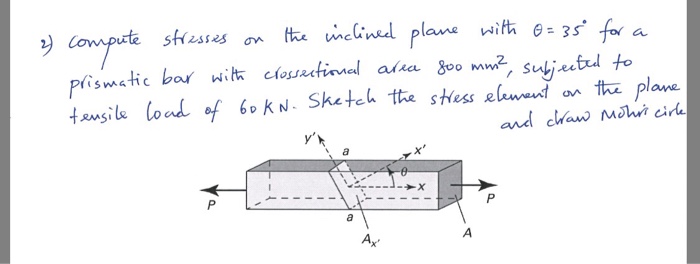 2) compute stresses on the inclined plane with θ = 35° for a
prismatic bar with crossectional area 800 mm², subjected to
tensile load of 60 KN. Sketch the stress element on the plane
and draw Mohr's cirle
y'
a
x'
θ
x
P
P
a
A
Ax'